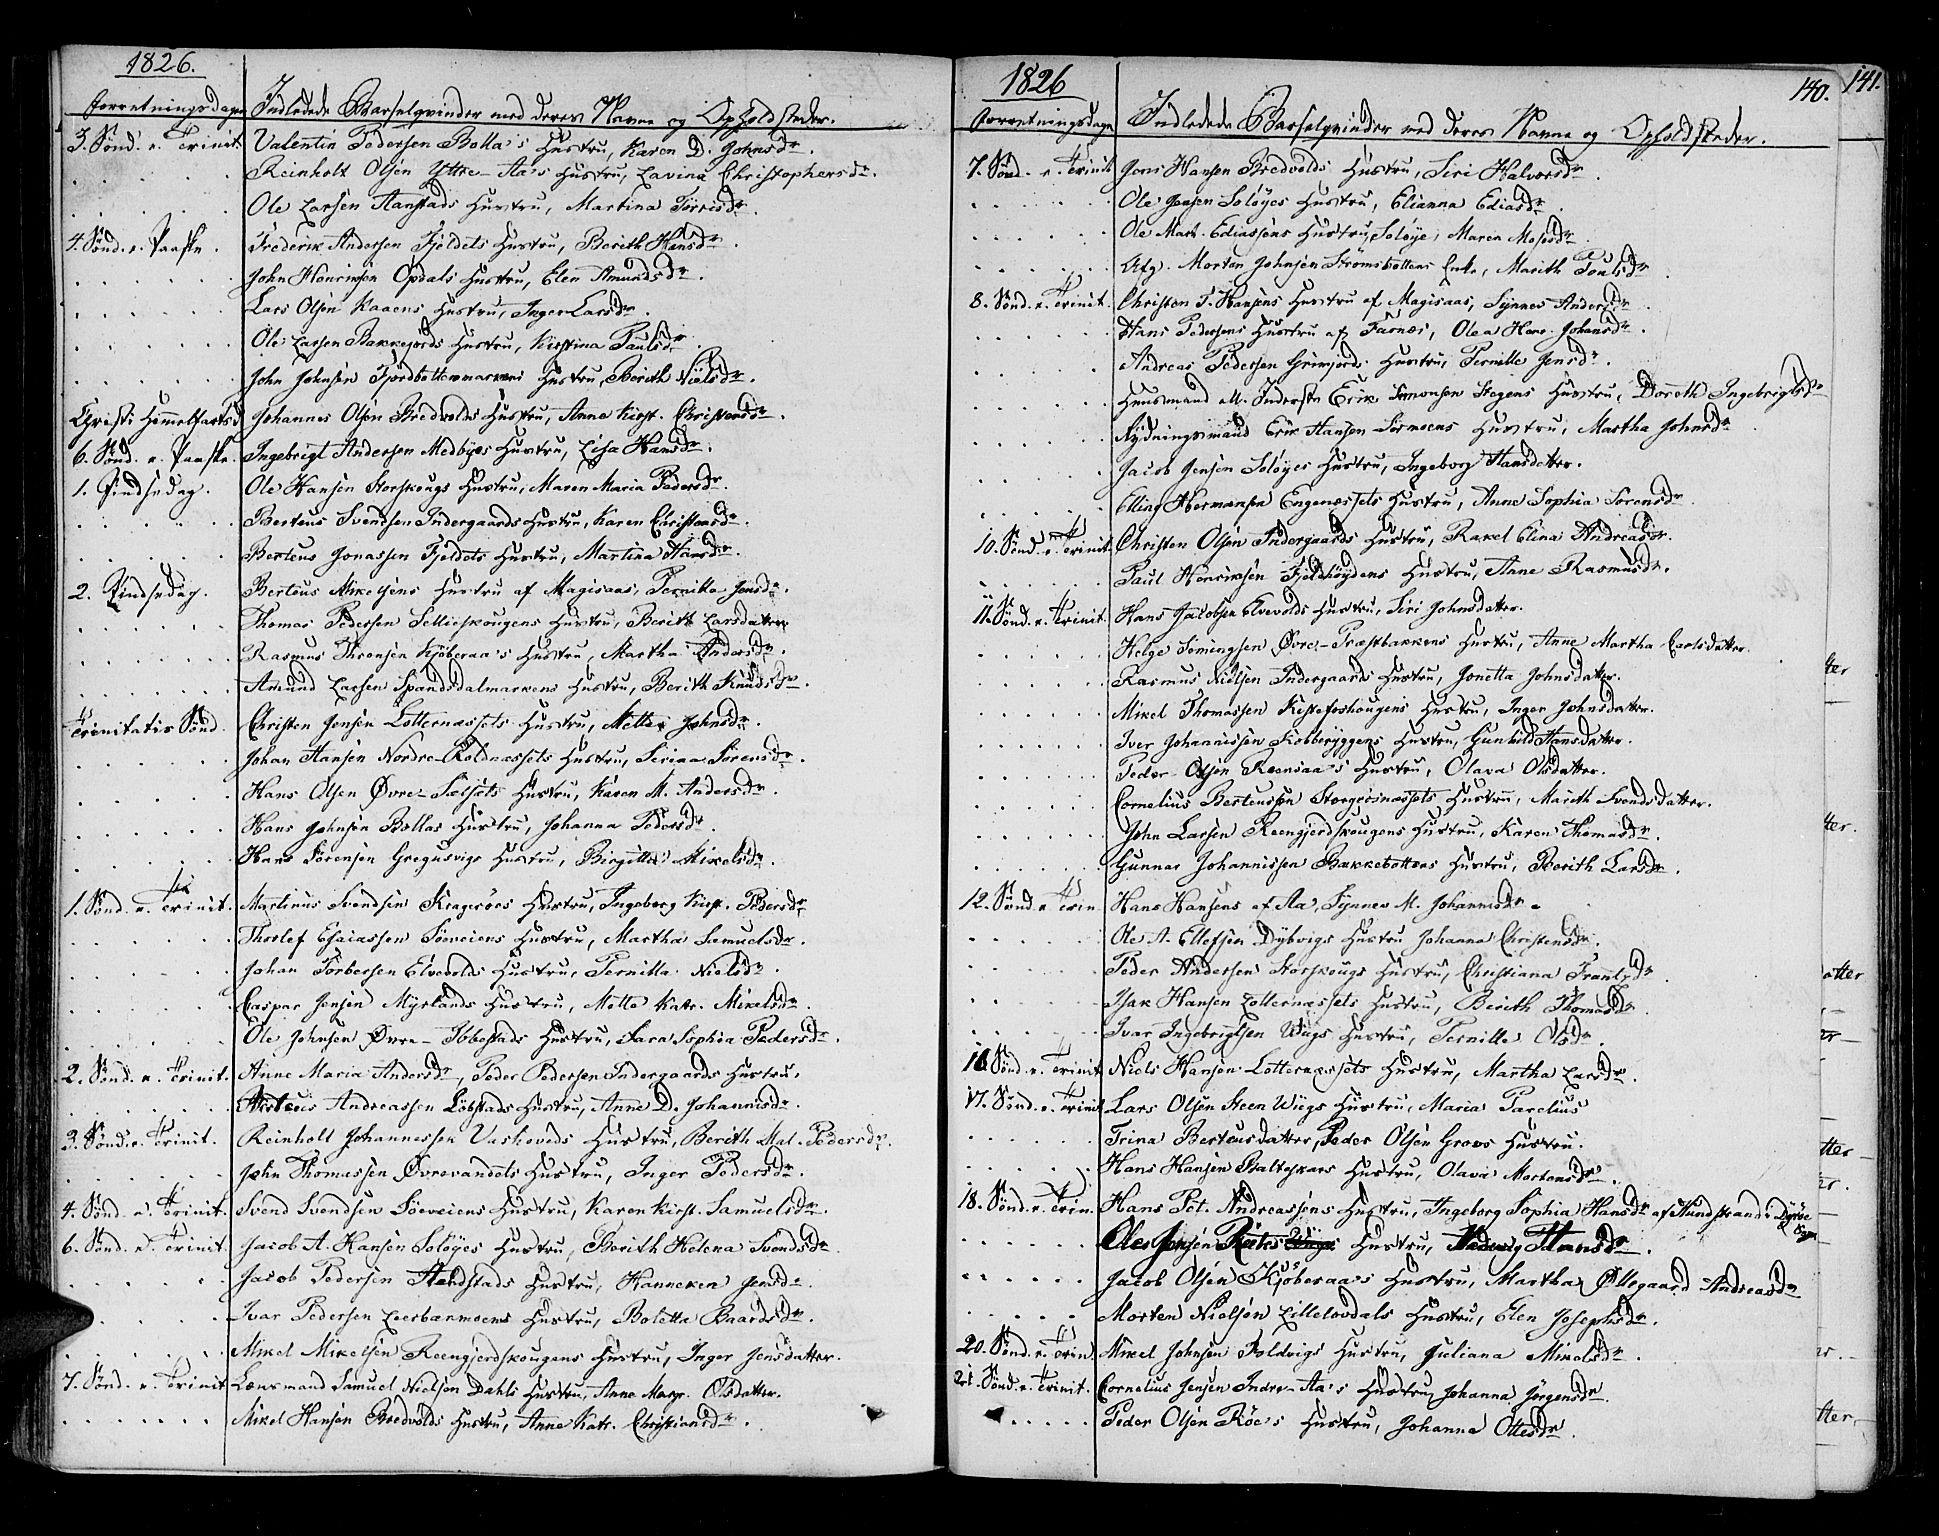 1826.
Forretningsdagen Indledede Barselqvinder med deres Navne og Opholdsteder.
3. Sönd. e. Trinit. Valentin Pedersen Bolla's Hustru, Karen D. Johnsdr.
Reinholt Olsen Yttre-Aa's Hustru, Lavina Christophersdr.
Ole Larsen Aanstads Hustru, Martina Torrisdr.
4. Sönd. e. Paaske. Frederik Andersen Fjeldets Hustru, Berith Hansdr.
John Henriksen Opdals Hustru, Elen Amundsdr.
Lars Olsen Kaaens Hustru, Inger Larsdr.
Ole Larsen Bakkejords Hustru, Kirstina Paulsdr.
John Johnsen Fjordbottenmarkens Hustru, Berith Nielsdr.
Christi Himmelfartsd. Johannes Olsen Bredvolds Hustru, Anne Kirst. Christensdr.
6. Sönd. e. Paaske. Ingebrigt Andersen Medbyes Hustru, Lisa Hansdr.
1. Pindsedag. Ole Hansen Storskougs Hustru, Maren Maria Pedersdr.
Berteus Svendsen Indergaards Hustru, Karen Christensdr.
Berteus Jonassen Fjeldets Hustru, Martina Hansdr.
2. Pindsedag. Berteus Mikelsens Hustru af Magisaas, Pernilla Jensdr.
Thomas Pedersen Selleskougens Hustru, Berith Larsdatter
Rasmus Thronsen Kjöberaa's Hustru, Martha Andersdr.
Amund Larsen Spandsdalmarkens Hustru, Berith Knudsdr.
Trinitatis Sönd. Christen Jensen Lotternæssets Hustru, Mette Johnsdr.
Johan Hansen Nordre-Roldnæssets Hustru, Serina Sörensdr.
Hans Olsen Övre-Sæssets Hustru, Karen M. Andersdr.
Hans Johnsen Bollas Hustru, Johanna Pedersdr.
Hans Sörensen Gregusvigs Hustru, Birgitte Mikelsdr.
1. Sönd. e. Trinit. Martinus Svendsen Kragröes Hustru, Ingeborg Kirst. Pedersdr.
Thorlef Esaiassen Söeveiens Hustru, Martha Samuelsdr.
Johan Torbersen Elvevolds Hustru, Pernilla Nielsdr.
Caspar Jensen Myrlands Hustru, Mette Katr. Mikelsdr.
Ole Johnsen Övre-Ibbestads Hustru, Sara Sophia Pedersdr.
2. Sönd. e. Trinit. Anne Maria Andersdr., Peder Pedersen Indergaards Hustru.
Andreassen Löbstads Hustru, Anne D. Johannisdr.
3. Sönd. e. Trinit. Reinholt Johannessen Vaskoveds Hustru, Berith Mal. Pedersdr.
John Thomassen Övrevandets Hustru, Inger Pedersdr.
4. Sönd. e. Trinit. Svend Svendsen Söeveiens Hustru, Karen Kirst. Samuelsdr.
6. Sönd. e. Trinit. Jacob A. Hansen Soløyes Hustru, Berith Helena Svendsdr.
Jacob Pedersen Hustru, Hanneken Jensdr.
Ivar Pedersen Leerbækmoens Hustru, Boletta Baardsdr.
Mikel Mikelsen Reengjerdskougens Hustru, Inger Jensdatter.
7. Sönd. e. Trinit. Lensmand Samuel Nielsen Dahls Hustru, Anne Margr. Olsdatter.
Mikel Hansen Bredvolds Hustru, Anne Katr. Christiansdr.
1826 140. 141.
Forretningsdage Indledede Barselqvinder med deres Navne og Opholdsteder.
7. Sönd. e. Trinit. Jens Hansen Bredvolds Hustru, Siri Halvorsdr.
Ole Jensen Soløyes Hustru, Elianna Ediasdr.
Ole Mart. Ediassens Hustru, Soløye, Maren Mosesdr.
Afg. Morten Johnsen Strømsbottens Enke, Marith Poulsdr.
8. Sönd. e. Trinit. Christen P. Hansens Hustru af Magisaas, Synnev Andersdr.
Hans Pedersens Hustru af Furnes, Olea Hans. Johansdr.
Andreas Pedersen Grimsjords Hustru, Pernille Jensdr.
Huusmand ell. Inderste Erik Simonsen Stegens Hustru, Dorreth Ingebrigtsdr.
Rydningsmand Erik Hansen Sörmoens Hustru, Martha Johnsdr.
Jacob Jensen Soløyes Hustru, Ingeborg Hansdatter.
Elling Hermansen Engenæssets Hustru, Anne Sophia Sörensdr.
10. Sönd. e. Trinit. Christen Olsen Indergaards Hustru, Rakel Elina Andreasdr.
Paul Henriksen Fjeldhøydens Hustru, Anne Rasmusdr.
11. Sönd. e. Trinit. Hans Jacobsen Elvevolds Hustru, Siri Johnsdatter.
Helge Somingsen Övre-Præstbakkens Hustru, Anne Martha Carlsdatter.
Rasmus Nielsen Indergaards Hustru, Jonetta Johnsdatter.
Mikel Thomassen Kistefoshougens Hustru, Inger Johnsdatter.
Iver Johannissen Kobberyggens Hustru, Gunhild Hansdatter.
Peder Olsen Reensaa's Hustru, Olava Olsdatter.
Cornelius Berteussen Storgrisnæssets Hustru, Marith Svendsdatter.
John Larsen Reengjerdskougens Hustru, Karen Thomasdr.
Gunnar Johannissen Bakkebottens Hustru, Berith Larsdr.
12. Sönd. e. Trin. Hans Hansens af Aa, Synnev M. Johannisdr.
Ole A. Ellefsen Dybvigs Hustru Johanna Christensdr.
Peder Andersen Storskougs Hustru, Christiana Frantzdr.
Isak Hansen Lotternæssets Hustru, Berith Thomasdr.
Ivar Ingebrigtsen Wiigs Hustru, Pernille Olsdr.
16. Sönd. e. Trinit. Niels Hansen Lotternæssets Hustru, Martha Larsdr.
17. Sönd. e. Trinit. Lars Olsen Steen Wiigs Hustru, Maria Parelius
Trina Berteusdatter, Peder Olsen Grovs Hustru.
Hans Hansen Balteskars Hustru, Olava Mortensdr.
18. Sönd. e. Trin. Hans Pet. Andreassens Hustru, Ingeborg Sophia Hansdr. af Hundstrand i Dyröe
Ole Jensen Hustru, Hedevig Hansdr.
Jacob Olsen Kjöberaa's Hustru, Martha Øllegaard Andreasdr.
Morten Nielsen Lillelovdals Hustru, Elen Josephsdr.
20. Sönd. e. Trin. Mikel Johnsen Foldvigs Hustru, Juliana Mikelsdr.
21. Sönd. e. Trinit. Cornelius Jensen Indre-Aa's Hustru Johanna Jörgensdr.
Peder Olsen Röe's Hustru, Johanna Ottesdr.